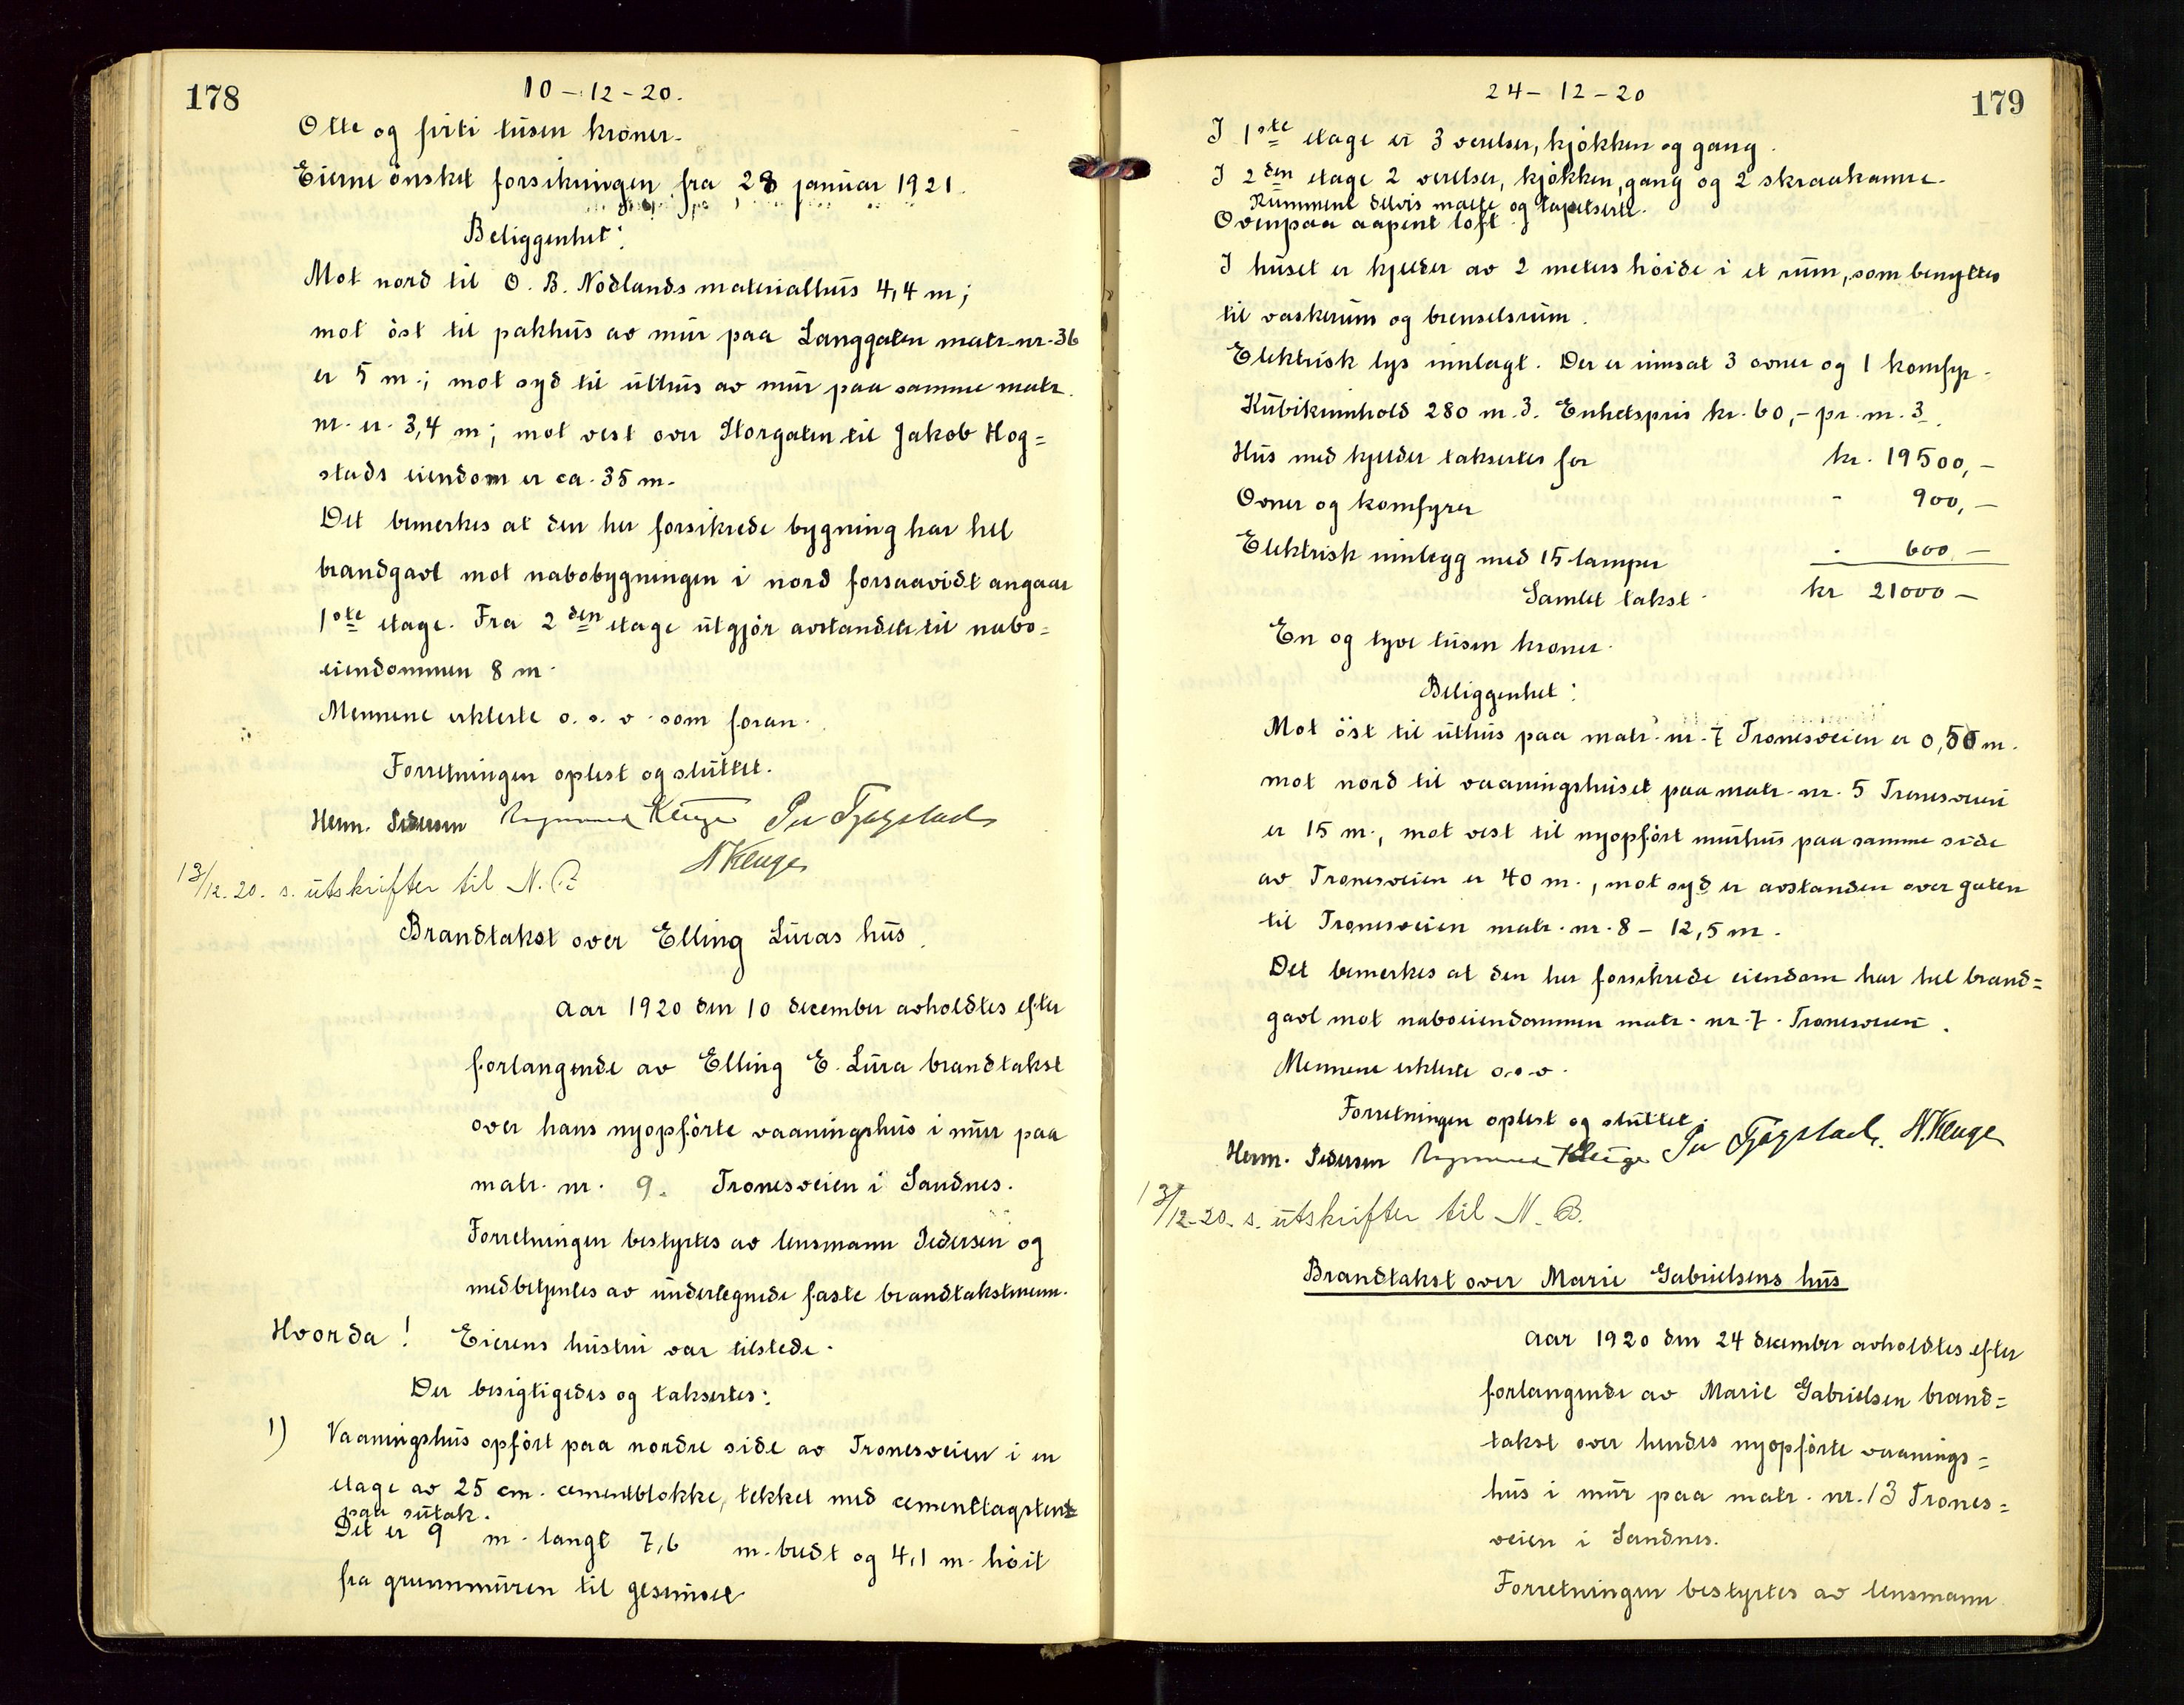 178
10-12-20.
Otte og firti tusen kroner.
Eierne ønsket forsikringen fra 28 januar 1921.
Beliggenhet:
Mot nord til O. B. Nödlands materialhus 4,4 m;
mot öst til pakhus av mur paa Langgaten matr. nr. 36
er 5 m.; mot syd til uthus av mur paa samme matr.
nr. er 3,4 m; mot vest over Storgaten til Jakob Hog=
stads eiendom er ca. 35 m.
Det bemerkes at den her forsikrede bygning har hel
brandgavl mot nabobygningen i nord forsaavidt angaar
1ste etage. Fra 2den etage utgjör avstanden til nabo=
eiendommen 8 m.
Mennene erklerte o. s. v. som foran.
Forretningen oplest og sluttet.
Herm. Pedersen Kluge
N Kluge
13/12-20. s. utskrifter til N. B.
Brandtakst over Elling Luras hus.
Aar 1920 den 10 december avholdtes efter
forlangende av Elling E. Lura brandtakst
over hans nyopförte vaaningshus i mur paa
matr. nr. 9. Tronesveien i Sandnes.
Forretningen bestyrtes av lensmann Pedersen og
medbetjentes av undertegnede faste brandtakstmenn.
Hvorda! Eierens hustru var tilstede.
Der besigtigedes og taksertes:
1) Vaaningshus opfört paa nordre side av Tronesveien i en
etage av 25 cm. cementblokke, tekket med cementtagsten
paa sutak.
Det er 9 m. langt 7,6 m. bredt og 4,1 m. höit
fra grunnmuren til gesimset
24-12-20
179
I 1ste etage er 3 verelser, kjökken og gang.
I 2den etage 2 verelser, kjökken, gang og 2 skraakamre.
Rummene delvis malte og tapetserte.
Ovenpaa aapent loft.
I huset er kjelder av 2 meters höide i et rum, som benyttes
til vaskerum og brenselsrum.
Elektrisk lys innlagt. Der er innsat 3 ovner og 1 komfyr.
Kubikinnhold 280 m.3. Enhetspris kr. 60,- pr. m.3.
Hus med kjelder taksertes for kr. 19500,-
Ovner og komfyrer - 900,-
Elektrisk innlegg med 15 lamper . 600,-
Samlet takst kr 21000-
En og tyve tusen kroner.
Beliggenhet:
Mot öst til uthus paa matr. nr. 7 Tronesveien er 0,50 m.
mot nord til vaaningshuset paa matr. nr. 5 Tronesveien
er 15 m., mot vest til nyopfört murhus paa samme side
av Tronesveien er 40 m., mot syd er avstanden over gaten
til Tronesveien matr. nr. 8 - 12,5 m.
Det bemerkes at den her forsikrede eiendom har hel brand=
gavl mot naboeiendommen matr. nr. 7. Tronesveien.
Mennene erklerte o.s.v.
Forretningen oplest og sluttet.
Herm. Pedersen Kluge N. Kluge
13/12-20. s. utskrifter til N. B.
Brandtakst over Marie Gabrielsens hus
Aar 1920 den 24 december avholdtes efter
forlangende av Marie Gabrielsen brand=
takst over hendes nyopförte vaanings=
hus i mur paa matr. nr. 13 Trones=
veien i Sandnes.
Forretningen bestyrtes av lensmann